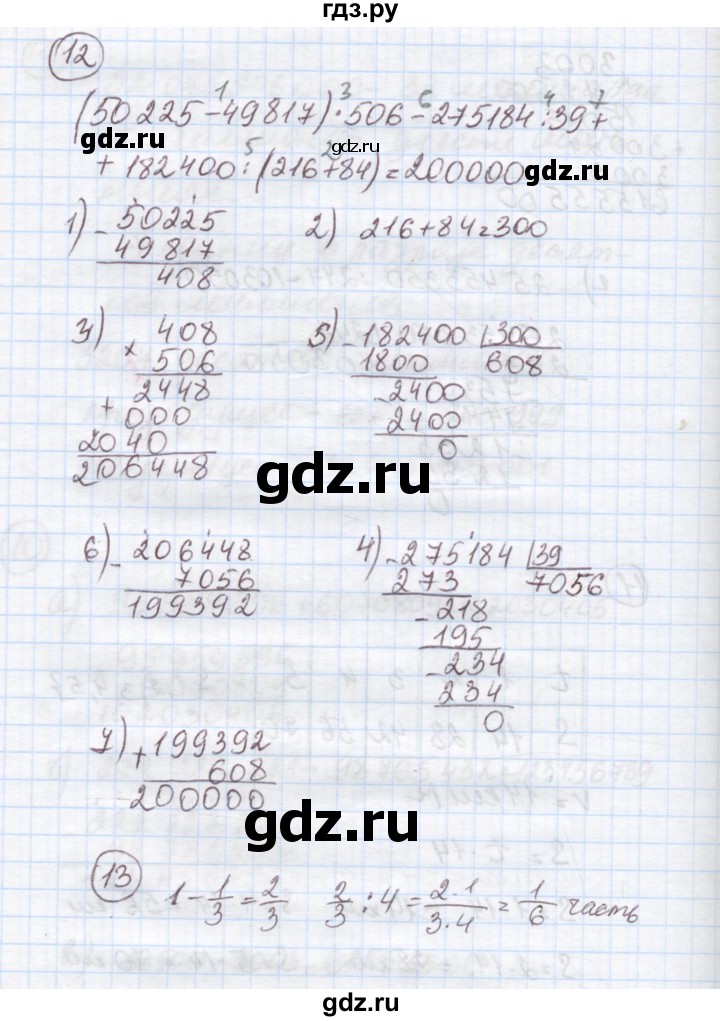 гдз.ру
12
1 3 6 4 7
(50225-49817)·506-275184:39+
5 2
+182400:(216+84)=200000
1) -50225
49817
408
2) 216+84=300
3) 408
×
506
2448
+000
2040
206448
5) -182400 300
1800 608
-2400
2400
0
6) -206448
7056
199392
4) -275184 39
273 7056
-218
195
-234
234
0
7) +199392
608
200000
13
1-1/3=2/3 2/3:4=2·1/3·4=1/6 часть
gdz.ru
gdz.ru
gdz.ru
gdz.ru
gdz.ru
gdz.ru
gdz.ru
gdz.ru